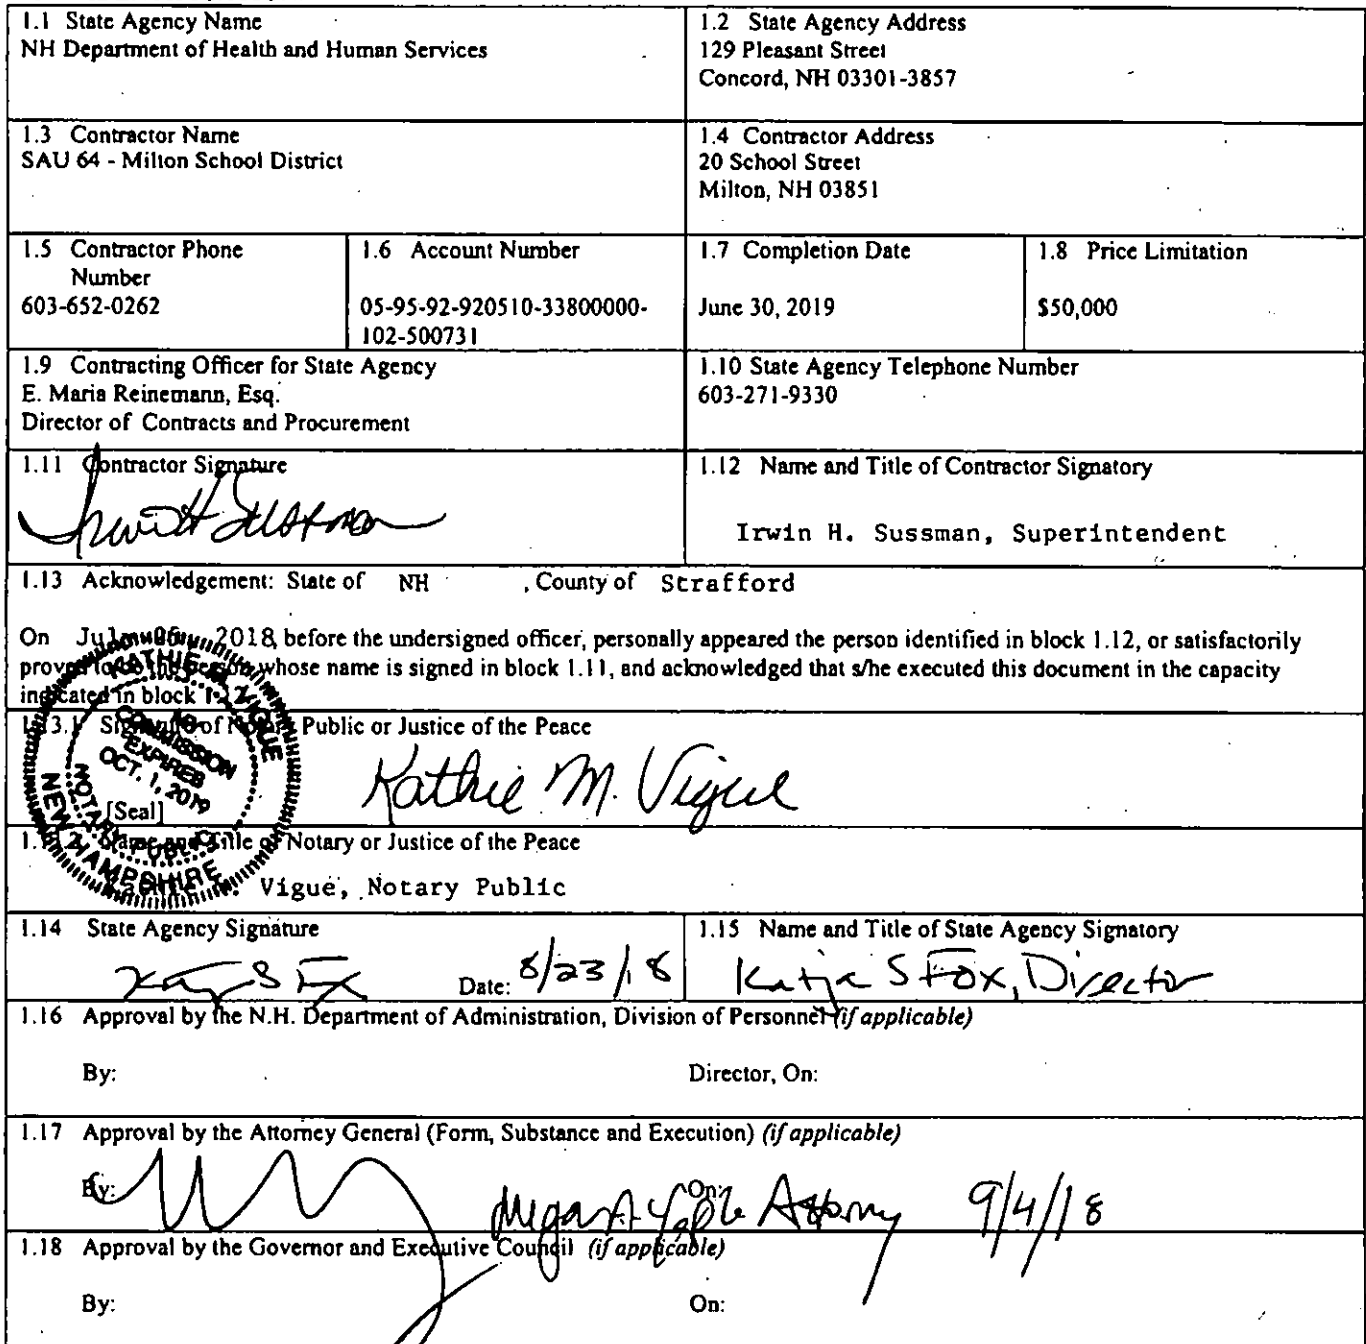 1.1 State Agency Name
NH Department of Health and Human Services
1.2 State Agency Address
129 Pleasant Street
Concord, NH 03301-3857
1.3 Contractor Name
SAU 64 - Milton School District
1.4 Contractor Address
20 School Street
Milton, NH 03851
1.5 Contractor Phone
Number
603-652-0262
1.6 Account Number
05-95-92-920510-33800000-
102-500731
1.7 Completion Date
June 30, 2019
1.8 Price Limitation
$50,000
1.9 Contracting Officer for State Agency
E. Maria Reinemann, Esq.
Director of Contracts and Procurement
1.10 State Agency Telephone Number
603-271-9330
1.11 Contractor Signature
Irwin H Sussman
1.12 Name and Title of Contractor Signatory
Irwin H. Sussman, Superintendent
1.13 Acknowledgement: State of NH , County of Strafford
On 2018, before the undersigned officer, personally appeared the person identified in block 1.12, or satisfactorily
proven to be the person whose name is signed in block 1.11, and acknowledged that s/he executed this document in the capacity
indicated in block 1.12.
1.13.1 Signature of Notary Public or Justice of the Peace
Kathie M. Vigue
KATHIE M. VIGUE
COMMISSION
EXPIRES
OCT. 1, 2019
NOTARY PUBLIC
NEW HAMPSHIRE
[Seal]
1.13.2 Name and Title of Notary or Justice of the Peace
Vigue, Notary Public
1.14 State Agency Signature
Date: 8/23/18
1.15 Name and Title of State Agency Signatory
Katja S Fox, Director
1.16 Approval by the N.H. Department of Administration, Division of Personnel (if applicable)
By:
Director, On:
1.17 Approval by the Attorney General (Form, Substance and Execution) (if applicable)
By:
On:
Megan A. Attorney 9/4/18
1.18 Approval by the Governor and Executive Council (if applicable)
By:
On: